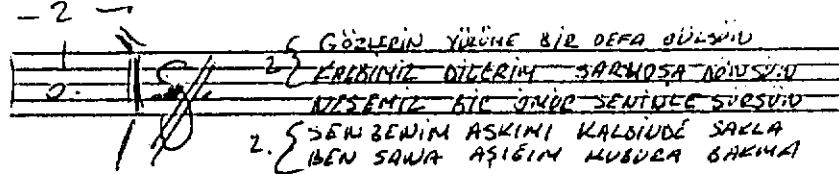 - 2 -
2. { GÖZLERİN YÜZÜME BİR DEFA GÜLSÜN
KALBİMİZ DİLERİM SARHOŞA DÖNSÜN
NEŞEMİZ BİR ÖMÜR SENİNLE SÜRSÜN
2. { SEN BENİM AŞKIMI KALBİNDE SAKLA
BEN SANA AŞIĞIM KUSURA BAKMA